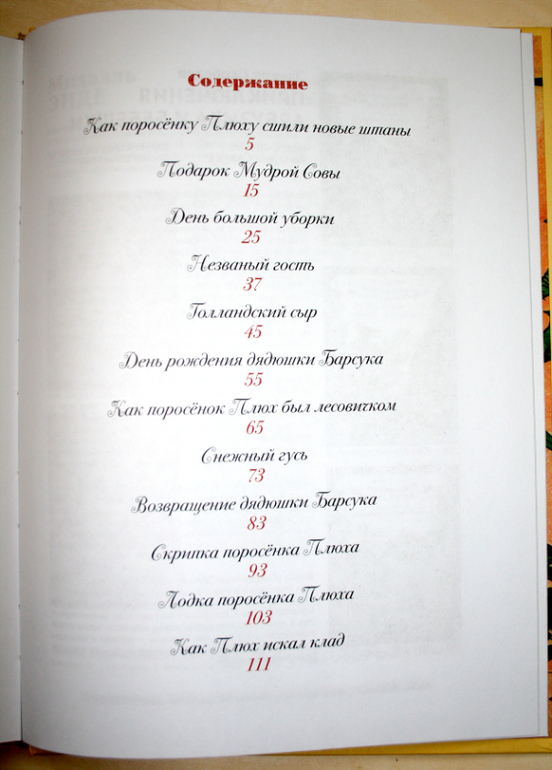 Содержание
Как поросёнку Плюху сшили новые штаны
5
Подарок Мудрой Совы
15
День большой уборки
25
Незваный гость
37
Голландский сыр
45
День рождения дядюшки Барсука
55
Как поросёнок Плюх был лесовичком
65
Снежный гусь
73
Возвращение дядюшки Барсука
83
Скрипка поросёнка Плюха
93
Лодка поросёнка Плюха
103
Как Плюх искал клад
111